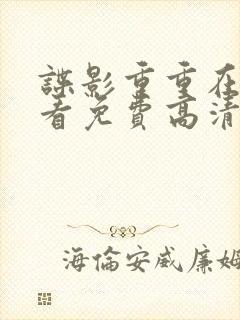 諜影重重在
看免費高清
海倫安威廉姆